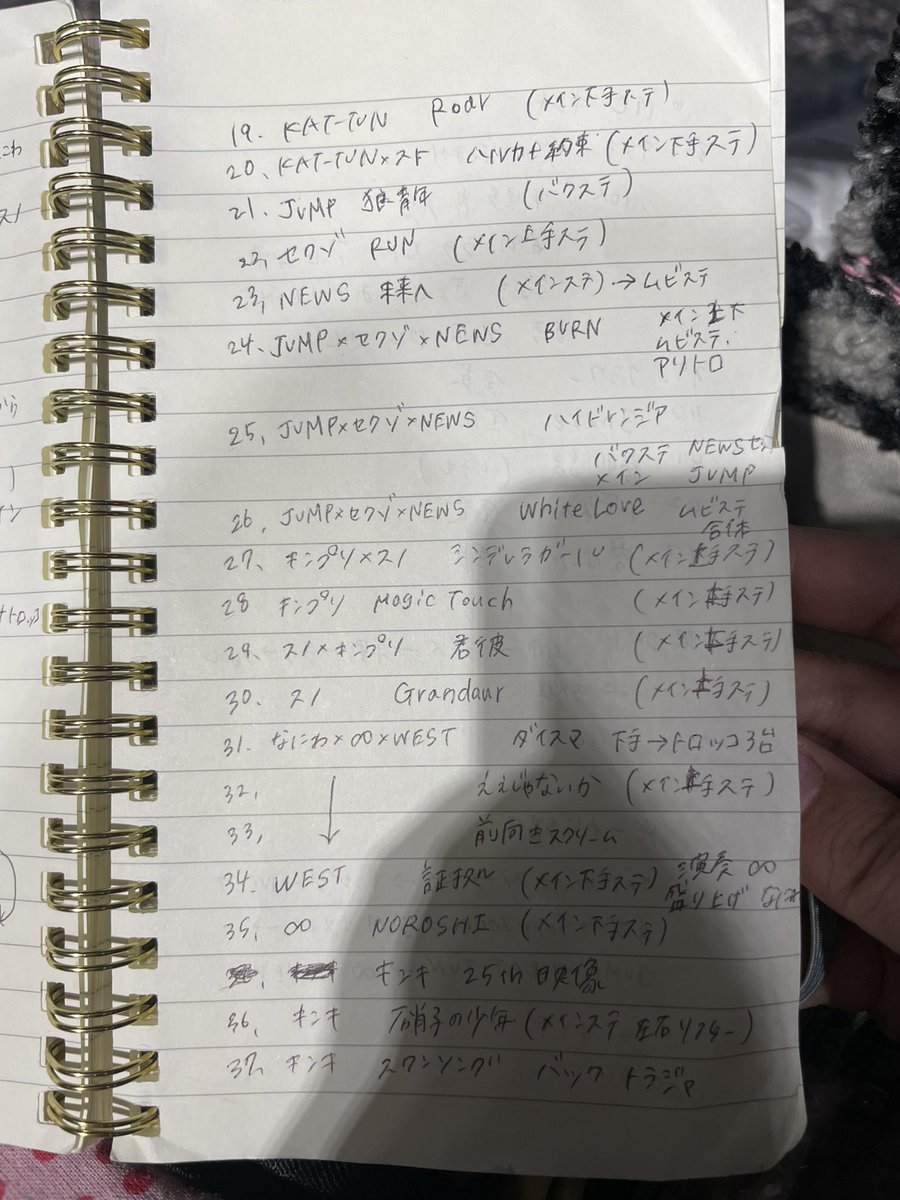 19. KAT-TUN Roar (メイン下手ステ)
20. KAT-TUN×スト ハルカナ約束 (メイン下手ステ)
21. JUMP 狼青年 (バクステ)
22. セクゾ RUN (メイン上手ステ)
23. NEWS 未来へ (メインステ)→ムビステ
24. JUMP×セクゾ×NEWS BURN メイン上下
ムビステ
アリトロ
25. JUMP×セクゾ×NEWS ハイドレンジア
バクステ NEWSセク
メイン JUMP
26. JUMP×セクゾ×NEWS White Love ムビステ
合体
27. キンプリ×スノ シンデレラガール (メイン上手ステ)
28 キンプリ Magic Touch (メイン上手ステ)
29. スノ×キンプリ 君彼 (メイン上手ステ)
30. スノ Grandaur (メイン上手ステ)
31. なにわ×∞×WEST ダイスマ 下手→トロッコ3台
32. ↓ ええじゃないか (メイン上手ステ)
33. 前向きスクリーム
34. WEST 証拠 (メイン下手ステ) 演奏 ∞
盛り上げ なにわ
35. ∞ NOROSHI (メイン下手ステ)
キンキ 25th 映像
36. キンキ 硝子の少年 (メインステ 左右リフター)
37. キンキ スワンソング バック トラジャ